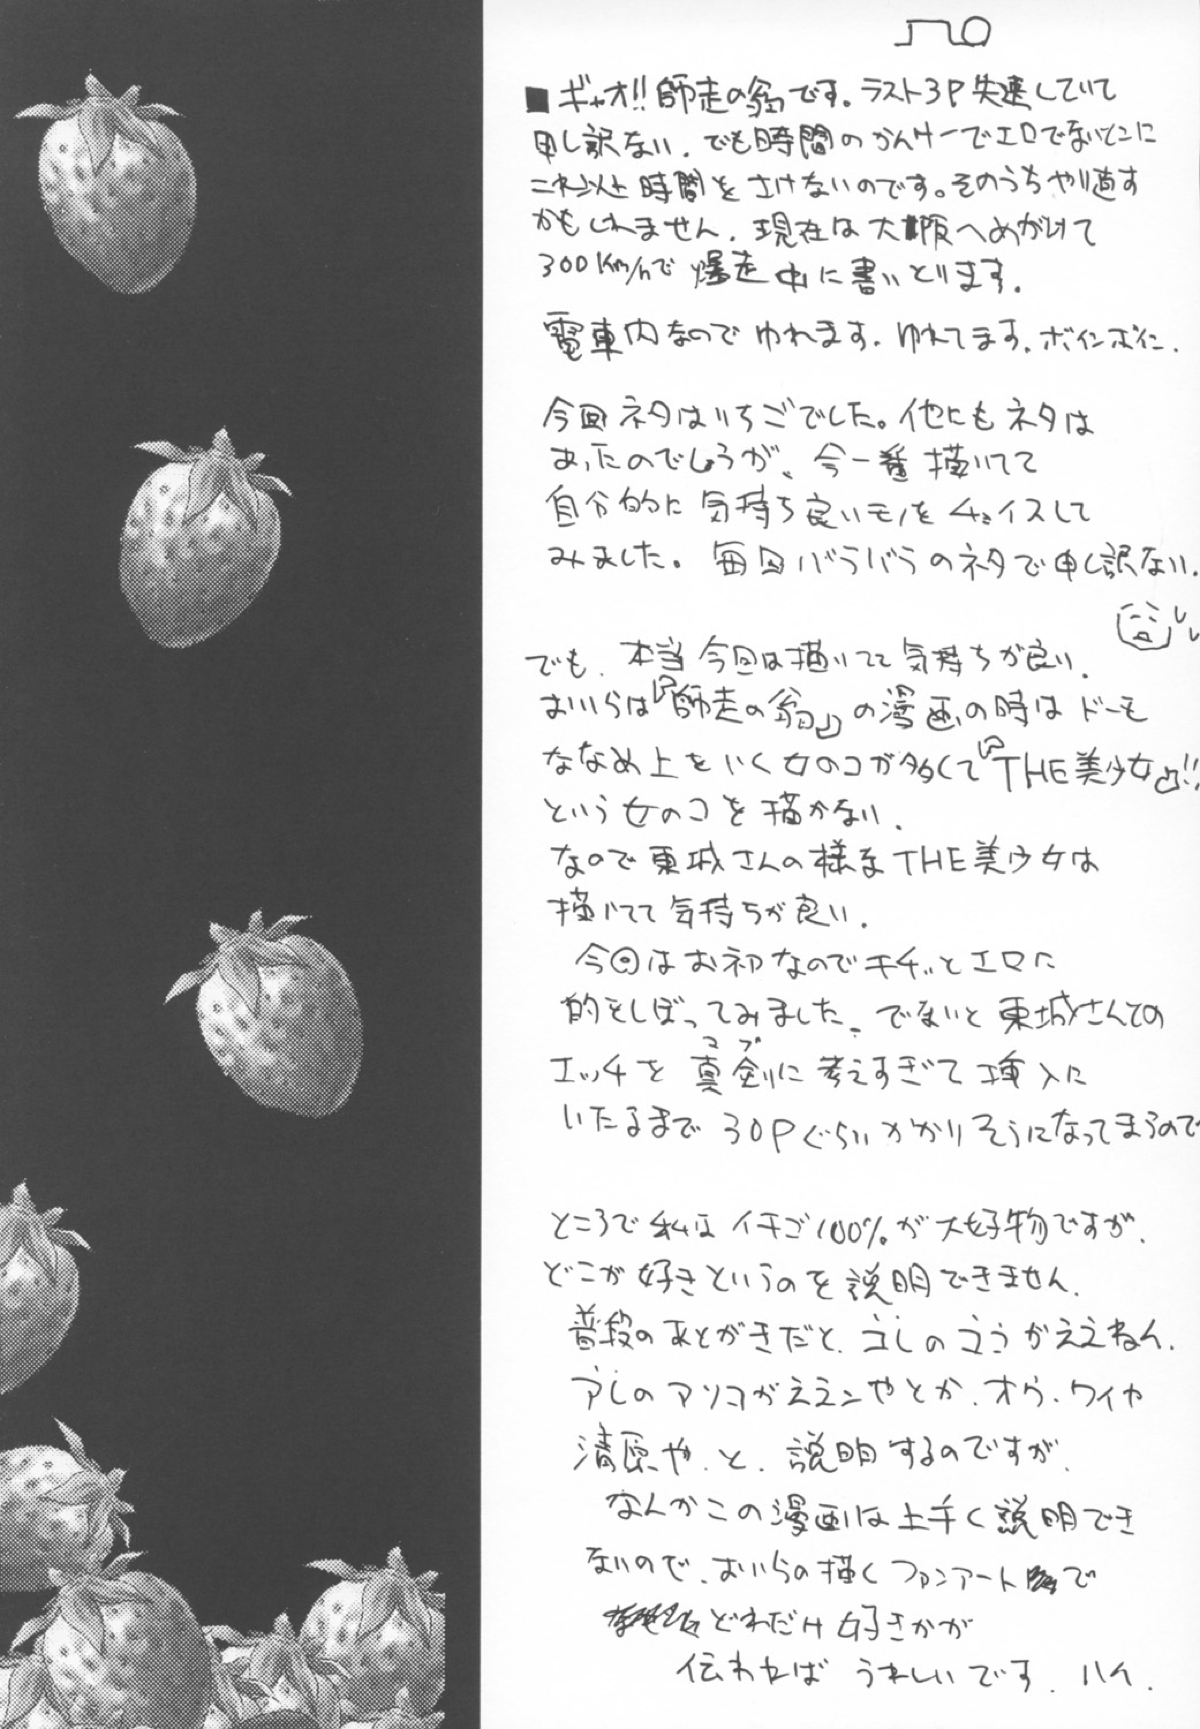 ■ギャオ!!師走の翁です。ラスト3P失速していて
申し訳ない。でも時間のかんけーでエロでないとこに
これ以上時間をさけないのです。そのうちやり直す
かもしれません。現在は大阪へめがけて
300Km/hで爆走中に書いとります。
電車内なのでゆれます。ゆれてます。ボインボイン。
今回ネタはいちごでした。他にもネタは
あったのでしょうが、今一番描いてて
自分的に気持ち良いモノをチョイスして
みました。毎回バラバラのネタで申し訳ない。
でも、本当今回は描いてて気持ちが良い。
おいらは『師走の翁』の漫画の時はドーモ
ななめ上をいく女のコが多くて『THE美少女』!!
という女のコを描かない。
なので東城さんの様なTHE美少女は
描いてて気持ちが良い。
今回はお初なのでキチッとエロに
的をしぼってみました。でないと東城さんての
エッチを真剣に考えすぎて挿入に
マブ
いたるまで30Pぐらいかかりそうになってまうので
ところで私はイチゴ100%が大好物ですが、
どこが好きというのを説明できません。
普段のあとがきだと、コレのココがええねん、
アレのアソコがええンやとか、オウ、ワイや
清原や、と、説明するのですが、
なんかこの漫画は上手く説明でき
ないので、おいらの描くファンアートで
どれだけ好きかが
伝わればうれしいです。ハイ。